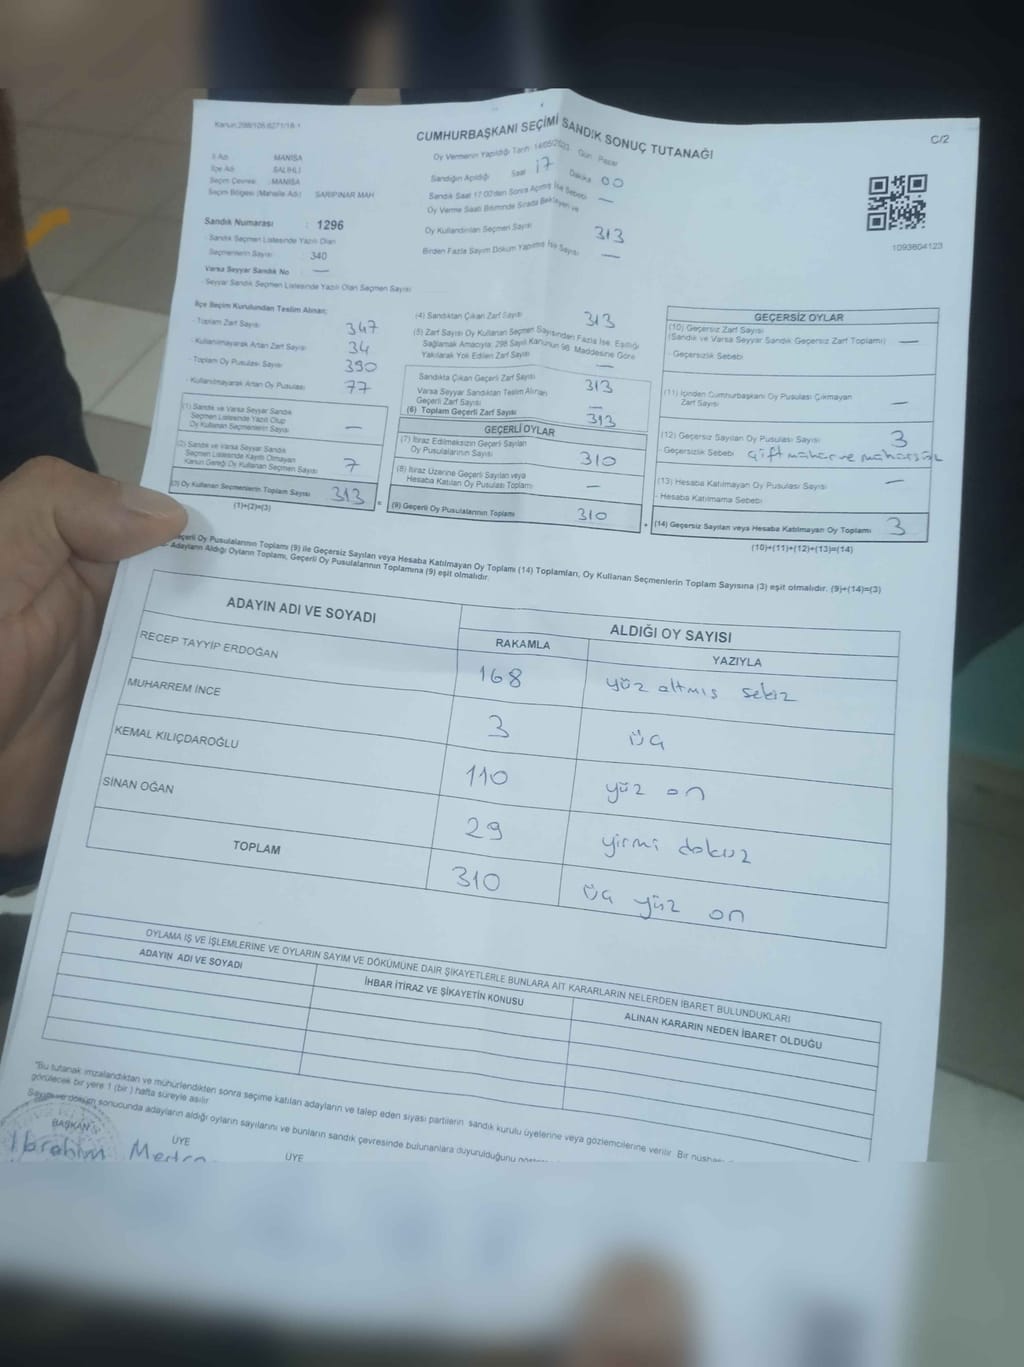 Kanun:298/105,6271/18-1
CUMHURBAŞKANI SEÇİMİ SANDIK SONUÇ TUTANAĞI
C/2
İl Adı MANİSA
İlçe Adı SALİHLİ
Seçim Çevresi :MANİSA
Seçim Bölgesi (Mahalle Adı) SARIPINAR MAH
Oy Vermenin Yapıldığı Tarih :14/05/2023 Gün: Pazar
Sandığın Açıldığı Saat 17 Dakika 00
Sandık Saat 17:00'den Sonra Açılmış İse Sebebi —
Oy Verme Saati Bitiminde Sırada Bekleyen ve
Oy Kullandırılan Seçmen Sayısı 313
Birden Fazla Sayım Döküm Yapılmış İse Sayısı —
1093604123
Sandık Numarası : 1296
Sandık Seçmen Listesinde Yazılı Olan
Seçmenlerin Sayısı : 340
Varsa Seyyar Sandık No —
Seyyar Sandık Seçmen Listesinde Yazılı Olan Seçmen Sayısı
İlçe Seçim Kurulundan Teslim Alınan;
- Toplam Zarf Sayısı 347
- Kullanılmayarak Artan Zarf Sayısı 34
- Toplam Oy Pusulası Sayısı 390
- Kullanılmayarak Artan Oy Pusulası 77
(1) Sandık ve Varsa Seyyar Sandık
Seçmen Listesinde Yazılı Olup
Oy Kullanan Seçmenlerin Sayısı —
(2) Sandık ve Varsa Seyyar Sandık
Seçmen Listesinde Kayıtlı Olmayan
Kanun Gereği Oy Kullanan Seçmen Sayısı 7
(3) Oy Kullanan Seçmenlerin Toplam Sayısı 313
(1)+(2)=(3)
(4) Sandıktan Çıkan Zarf Sayısı 313
(5) Zarf Sayısı Oy Kullanan Seçmen Sayısından Fazla İse, Eşitliği
Sağlamak Amacıyla; 298 Sayılı Kanunun 98. Maddesine Göre
Yakılarak Yok Edilen Zarf Sayısı —
Sandıkta Çıkan Geçerli Zarf Sayısı 313
Varsa Seyyar Sandıktan Teslim Alınan
Geçerli Zarf Sayısı —
(6) Toplam Geçerli Zarf Sayısı 313
GEÇERLİ OYLAR
(7) İtiraz Edilmeksizin Geçerli Sayılan
Oy Pusulalarının Sayısı 310
(8) İtiraz Üzerine Geçerli Sayılan veya
Hesaba Katılan Oy Pusulası Toplamı —
(9) Geçerli Oy Pusulalarının Toplamı 310
GEÇERSİZ OYLAR
(10) Geçersiz Zarf Sayısı
(Sandık ve Varsa Seyyar Sandık Geçersiz Zarf Toplamı) —
- Geçersizlik Sebebi
(11) İçinden Cumhurbaşkanı Oy Pusulası Çıkmayan
Zarf Sayısı —
(12) Geçersiz Sayılan Oy Pusulası Sayısı 3
- Geçersizlik Sebebi Çift mühür ve mühürsüz
(13) Hesaba Katılmayan Oy Pusulası Sayısı —
- Hesaba Katılmama Sebebi
(14) Geçersiz Sayılan veya Hesaba Katılmayan Oy Toplamı 3
(10)+(11)+(12)+(13)=(14)
Geçerli Oy Pusulalarının Toplamı (9) ile Geçersiz Sayılan veya Hesaba Katılmayan Oy Toplamı (14) Toplamları, Oy Kullanan Seçmenlerin Toplam Sayısına (3) eşit olmalıdır. (9)+(14)=(3)
Adayların Aldığı Oyların Toplamı, Geçerli Oy Pusulalarının Toplamına (9) eşit olmalıdır.
ADAYIN ADI VE SOYADI
ALDIĞI OY SAYISI
RAKAMLA YAZIYLA
RECEP TAYYİP ERDOĞAN 168 yüz altmış sekiz
MUHARREM İNCE 3 üç
KEMAL KILIÇDAROĞLU 110 yüz on
SİNAN OĞAN 29 yirmi dokuz
TOPLAM 310 üç yüz on
OYLAMA İŞ VE İŞLEMLERİNE VE OYLARIN SAYIM VE DÖKÜMÜNE DAİR ŞİKAYETLERLE BUNLARA AİT KARARLARIN NELERDEN İBARET BULUNDUKLARI
ADAYIN ADI VE SOYADI İHBAR İTİRAZ VE ŞİKAYETİN KONUSU ALINAN KARARIN NEDEN İBARET OLDUĞU
"Bu tutanak imzalandıktan ve mühürlendikten sonra seçime katılan adayların ve talep eden siyasi partilerin sandık kurulu üyelerine veya gözlemcilerine verilir. Bir
görülecek bir yere 1 (bir) hafta süreyle asılır.
Sayım ve döküm sonucunda adayların aldığı oyların sayılarını ve bunların sandık çevresinde bulunanlara duyurulduğunu
BAŞKAN ÜYE ÜYE
İbrahim